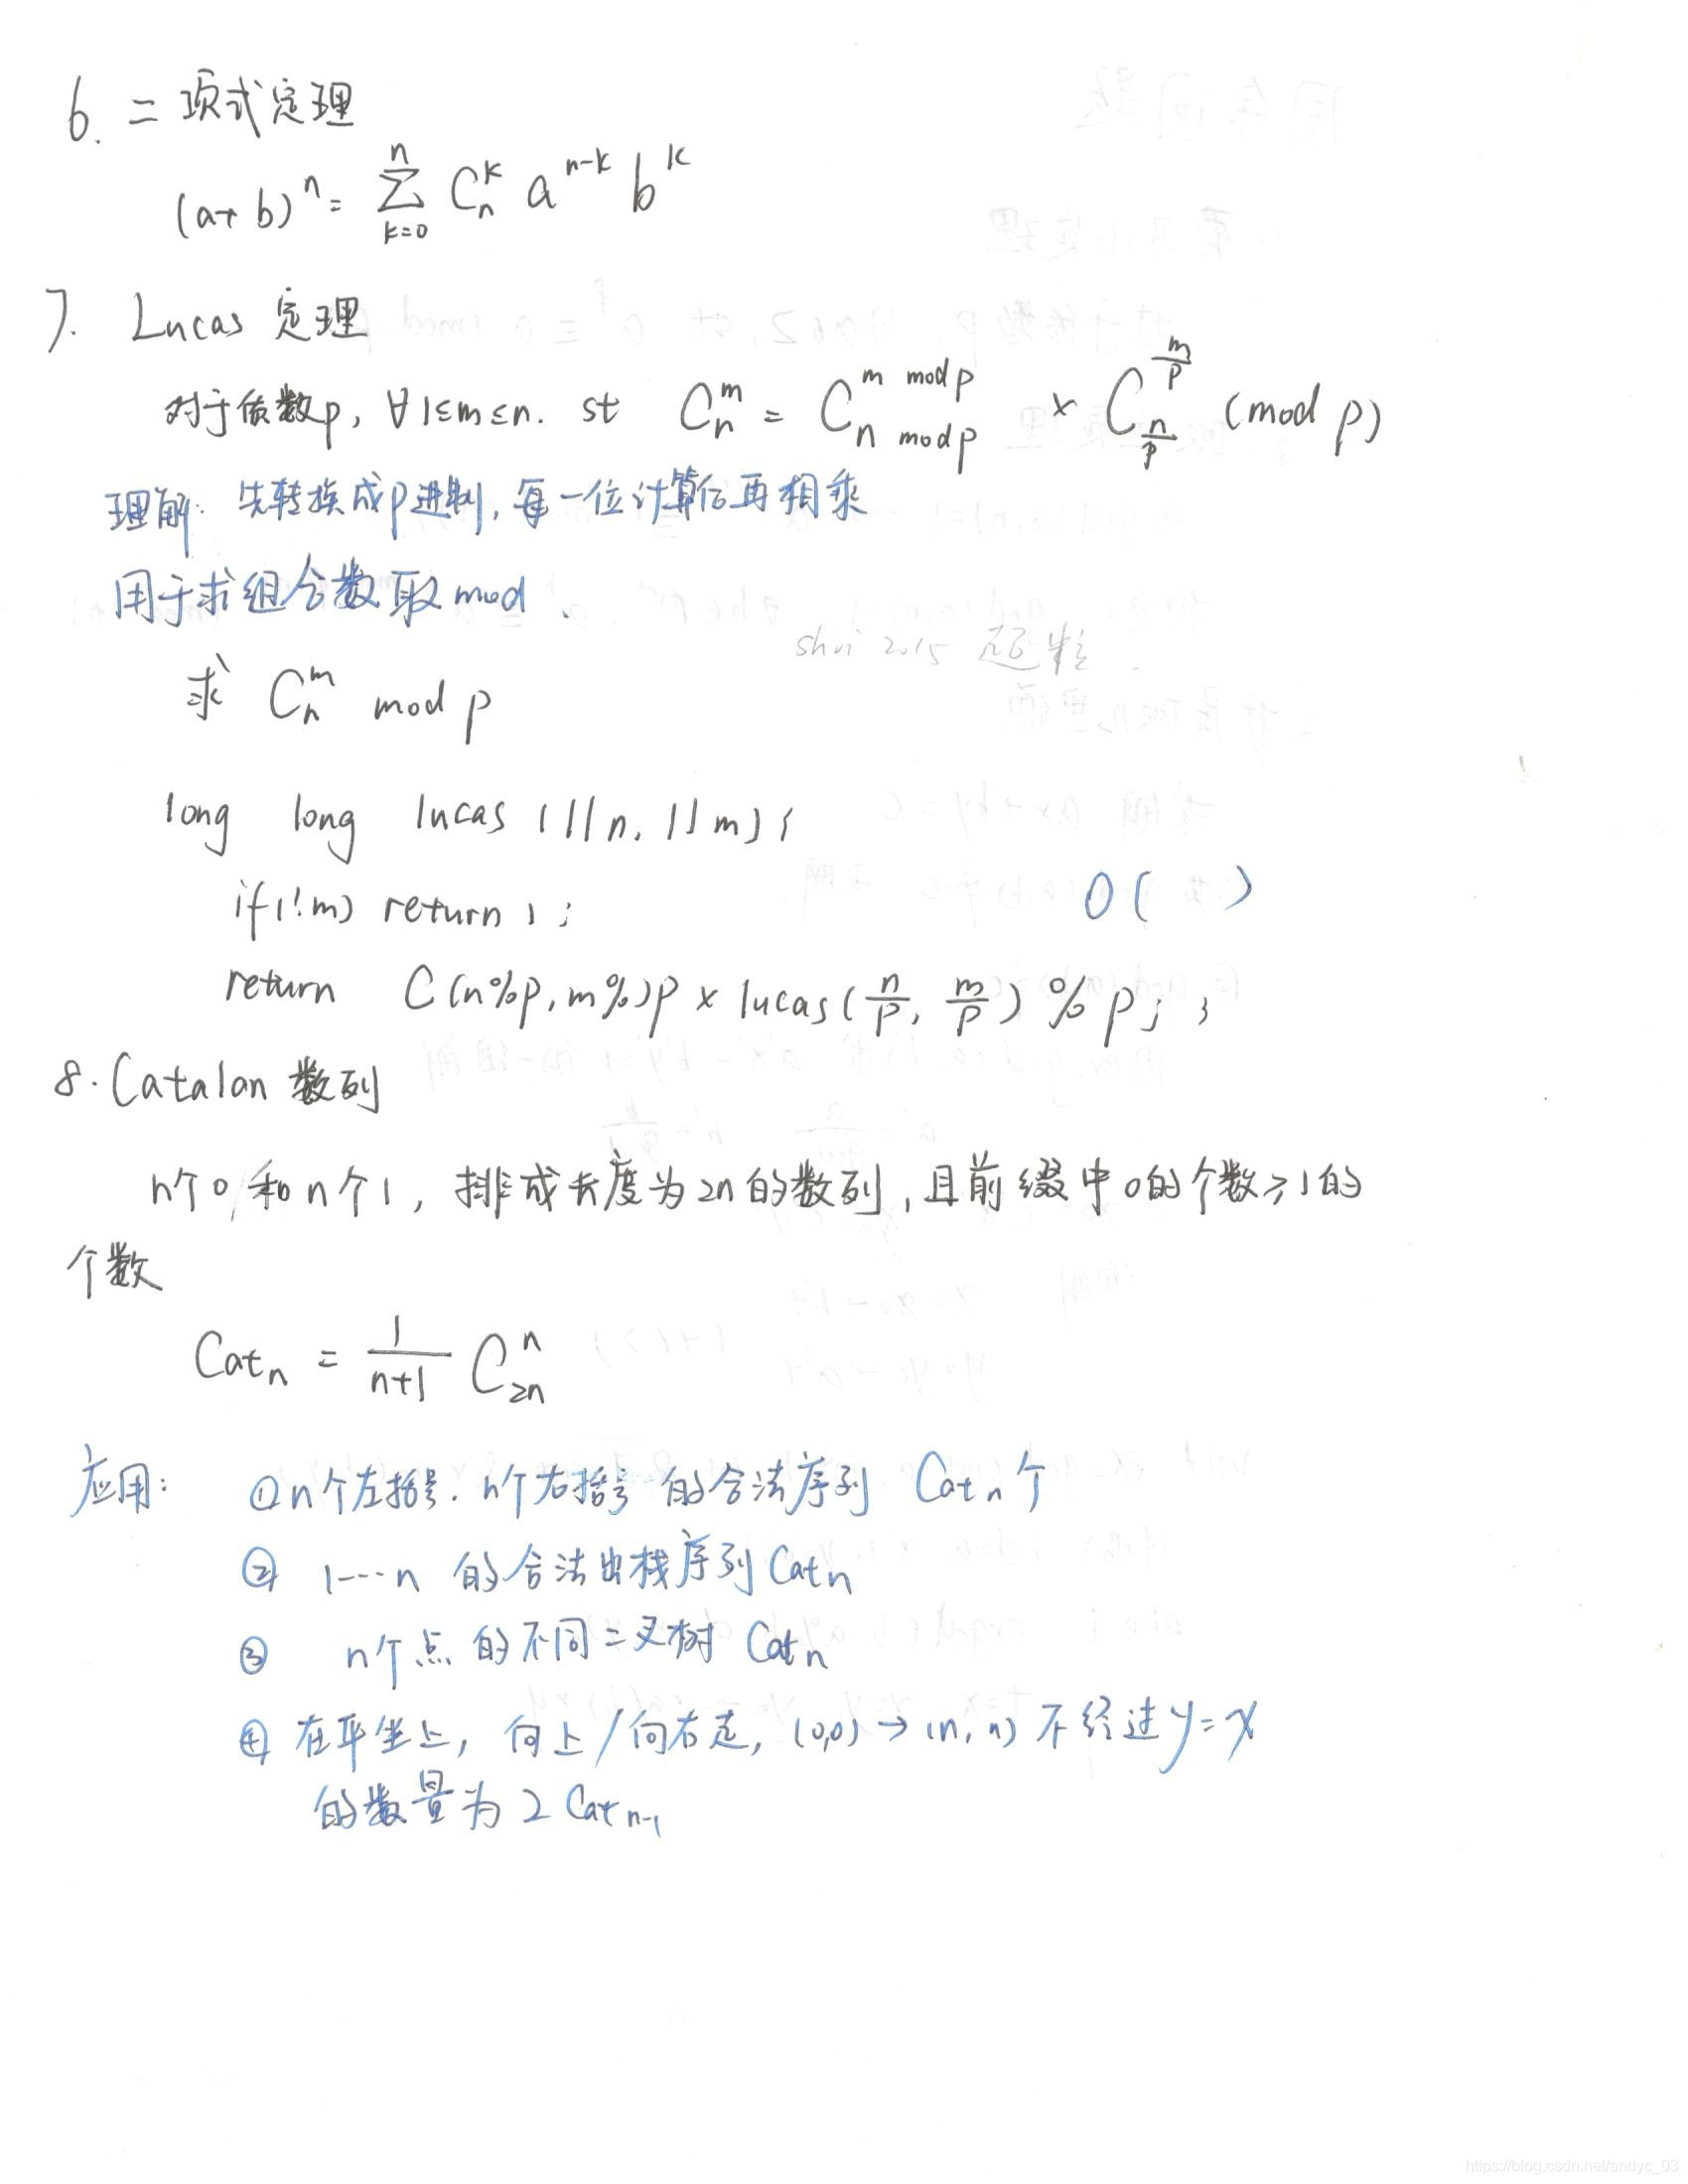 6. 二项式定理
(a+b)^n = \sum_{k=0}^{n} C_n^k a^{n-k} b^k
7. Lucas 定理
对于质数p, ∀1≤m≤n. st C_n^m = C_{n mod p}^{m mod p} × C_{\frac{n}{p}}^{\frac{m}{p}} (mod p)
理解: 先转换成p进制, 每一位计算后再相乘
用于求组合数取mod.
shoi 2015 超能
求 C_n^m mod p
long long lucas (ll n, ll m) {
if(!m) return 1;
O( )
return C(n%p, m%)p × lucas(\frac{n}{p}, \frac{m}{p}) % p; }
8. Catalan 数列
n个0和n个1, 排成长度为2n的数列, 且前缀中0的个数≥1的
个数
Cat_n = \frac{1}{n+1} C_{2n}^n
应用: ① n个左括号. n个右括号 的合法序列 Cat_n 个
② 1---n 的合法出栈序列 Cat_n
③ n个点的不同二叉树 Cat_n
④ 在平坐上, 向上/向右走, (0,0) → (n, n) 不经过y=x
的数量为 2 Cat_{n-1}
https://blog.csdn.net/andyc_03